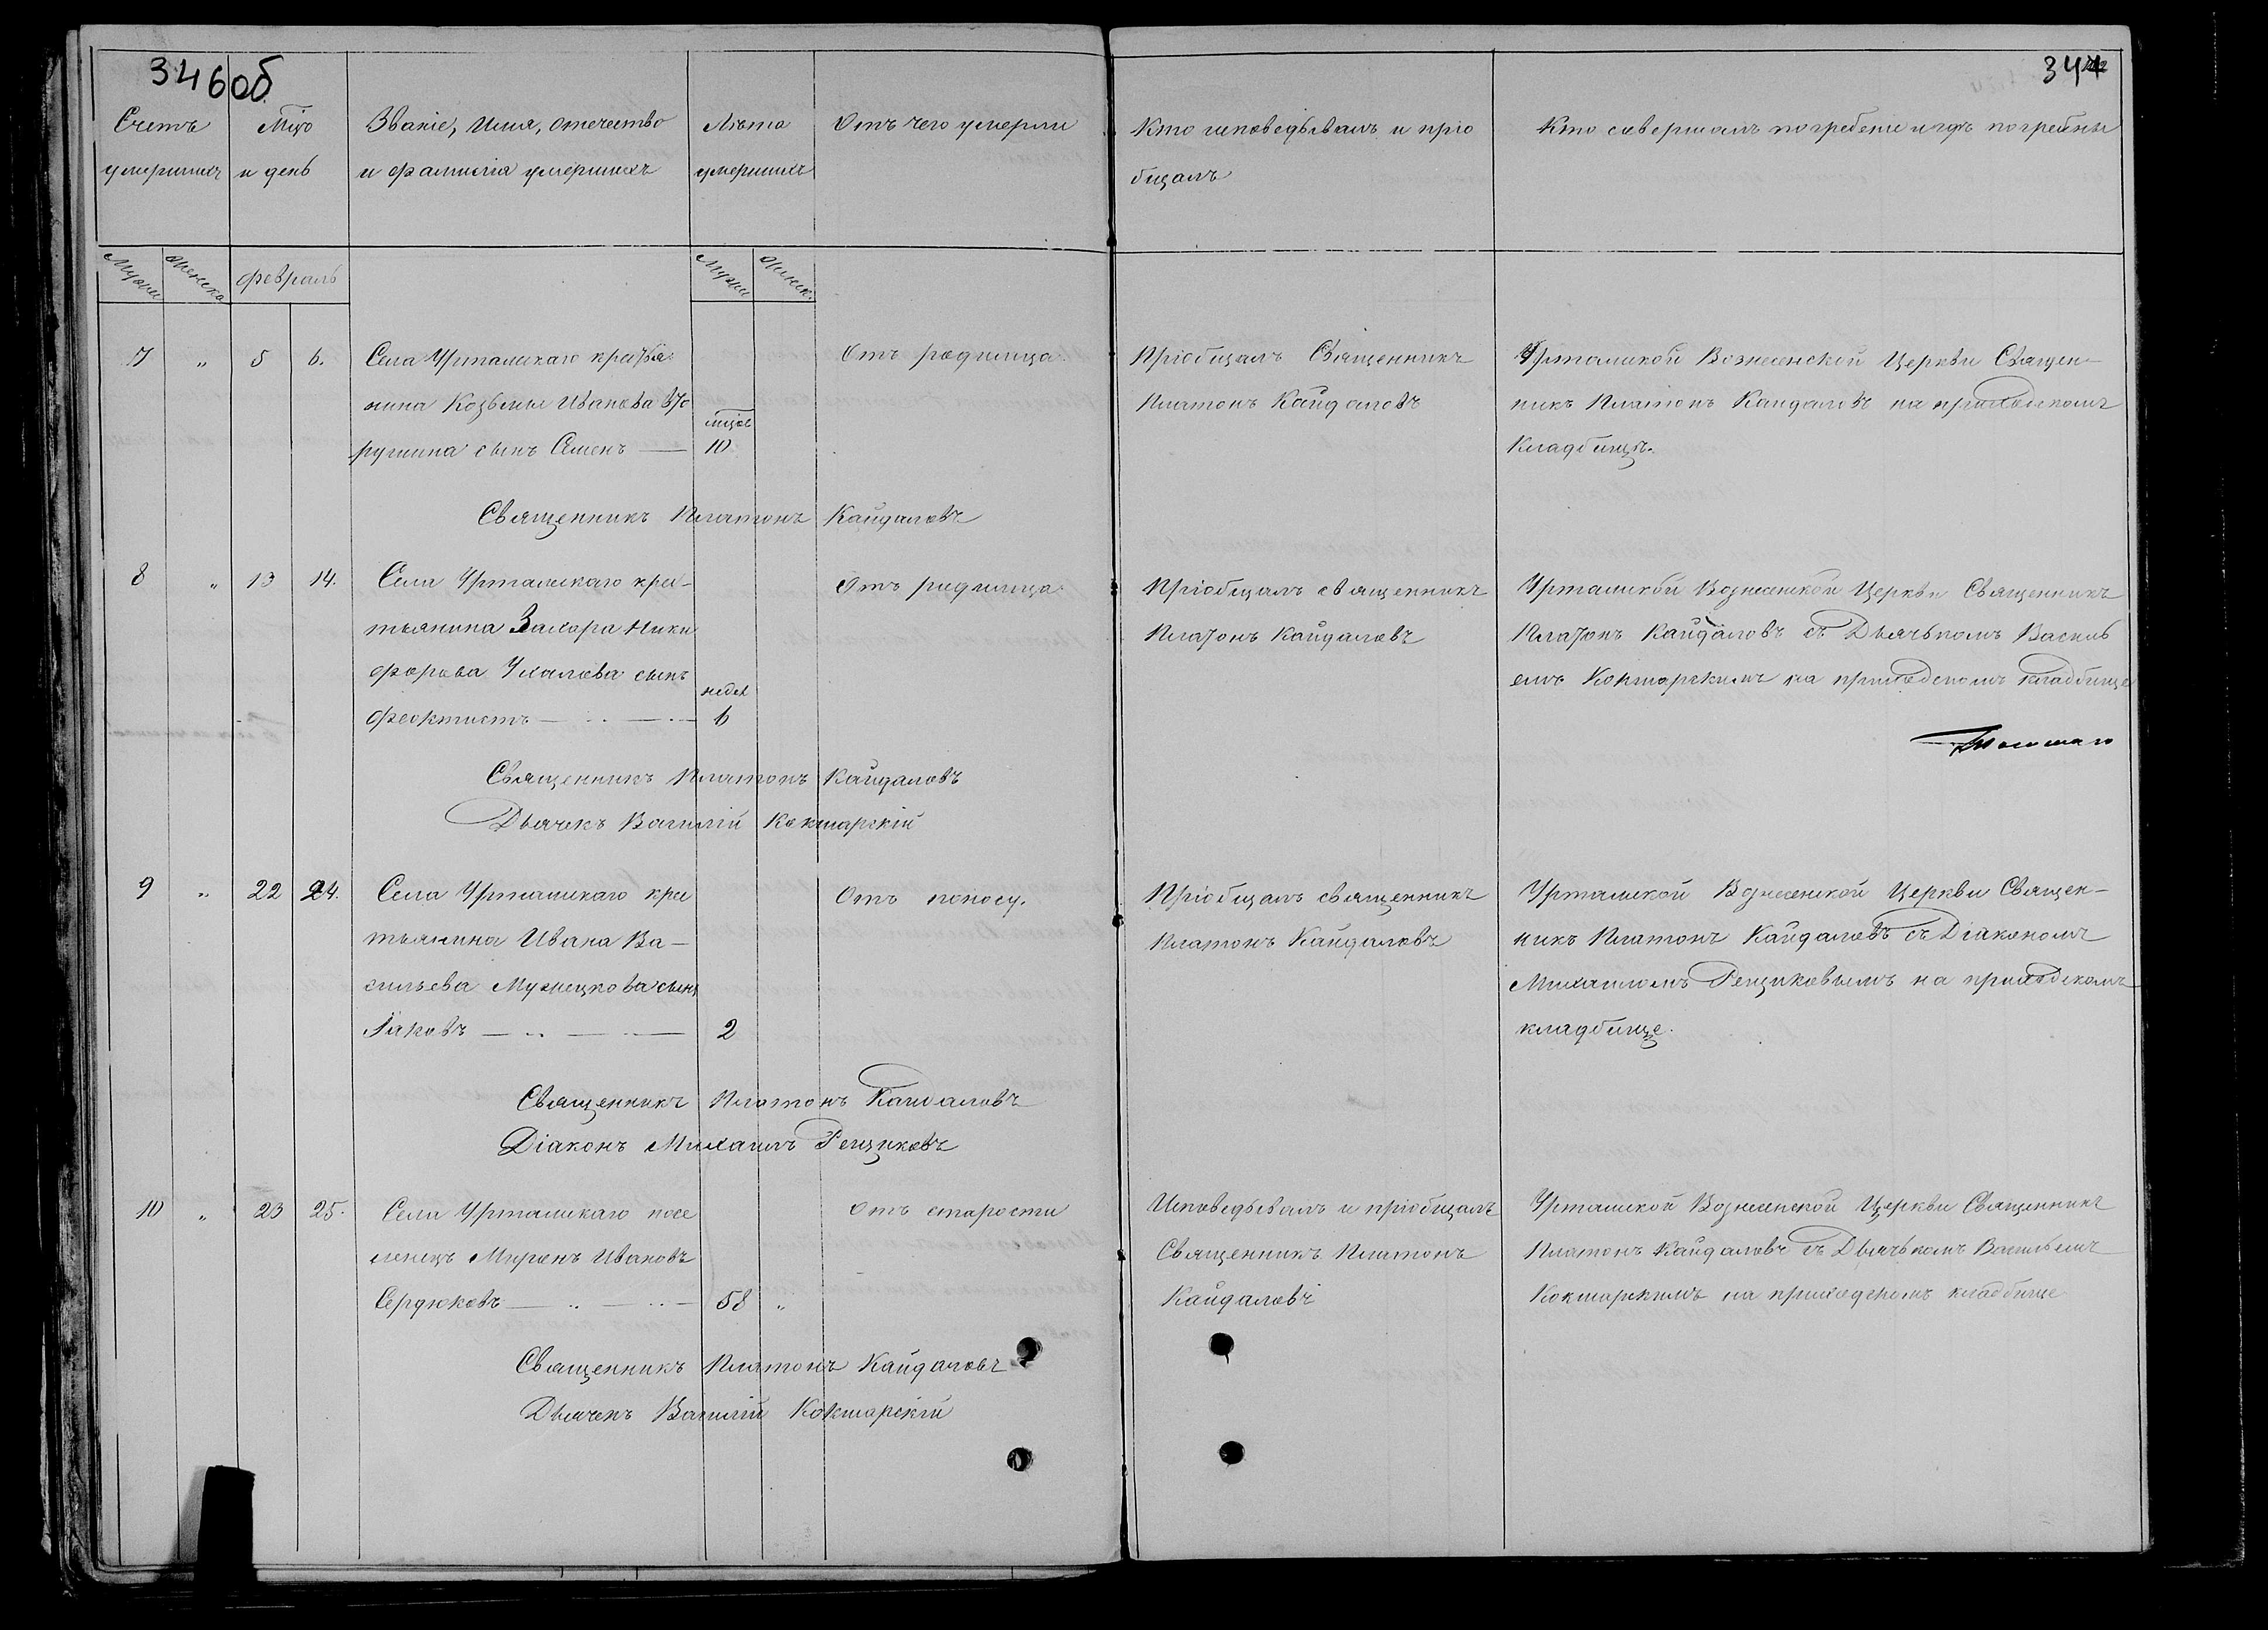 346об
347
Счетъ
умершихъ
Мцъ
и день
Званіе, имя, отечество
и фамилія умершихъ
Лѣта
умершихъ
Отъ чего умерли
Кто исповедывалъ и пріо
бщалъ
Кто совершалъ погребеніе и гдѣ погребены
Мужск
Женска
Февраль
Мужск
Женск.
7 „ 5 6.
Села Уртамскаго крестья
нина Козьмы Иванова Вто
рушина сынъ Семенъ
мцовъ
10
Отъ родимца
Пріобщалъ Священникъ
Платонъ Кайдаловъ
Уртамской Вознесенской Церкви Священ-
никъ Платонъ Кайдаловъ на приходскомъ
Кладбищѣ.
Священникъ Платонъ Кайдаловъ
8 „ 13 14.
Села Уртамскаго крес-
тьянина Захара Ники
форова Ухалова сынъ
Феоктистъ
недел
6
Отъ родимца
Пріобщалъ священникъ
Платонъ Кайдаловъ
Уртамской Вознесенской Церкви Священникъ
Платонъ Кайдаловъ съ Дьячькомъ Василь
емъ Кокшарскимъ на приходскомъ кладбище
Священникъ Платонъ Кайдаловъ
Дьячекъ Василій Кокшарскій
9 „ 22 24.
Села Уртамскаго крес
тьянина Ивана Ва-
сильева Мужецкова сынъ
Іаковъ
2
Отъ поносу.
Пріобщалъ священникъ
Платонъ Кайдаловъ
Уртамской Вознесенской Церкви Священ-
никъ Платонъ Кайдаловъ съ Діакономъ
Михаиломъ Рещиковымъ на приходскомъ
кладбище.
Священникъ Платонъ Кайдаловъ
Діаконъ Михаилъ Рещиковъ
10 „ 23 25.
Села Уртамскаго посе
ленецъ Миронъ Ивановъ
Сердюковъ
58 „
Отъ старости
Исповедывалъ и пріобщалъ
Священникъ Платонъ
Кайдаловъ
Уртамской Вознесенской Церкви Священникъ
Платонъ Кайдаловъ съ Дьячькомъ Васильемъ
Кокшарскимъ на приходскомъ кладбище
Священникъ Платонъ Кайдаловъ
Дьячекъ Василій Кокшарскій